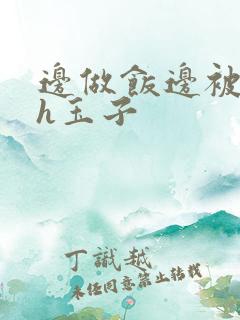 邊做飯邊被
h玉子
丁識越
未任同意禁止转载